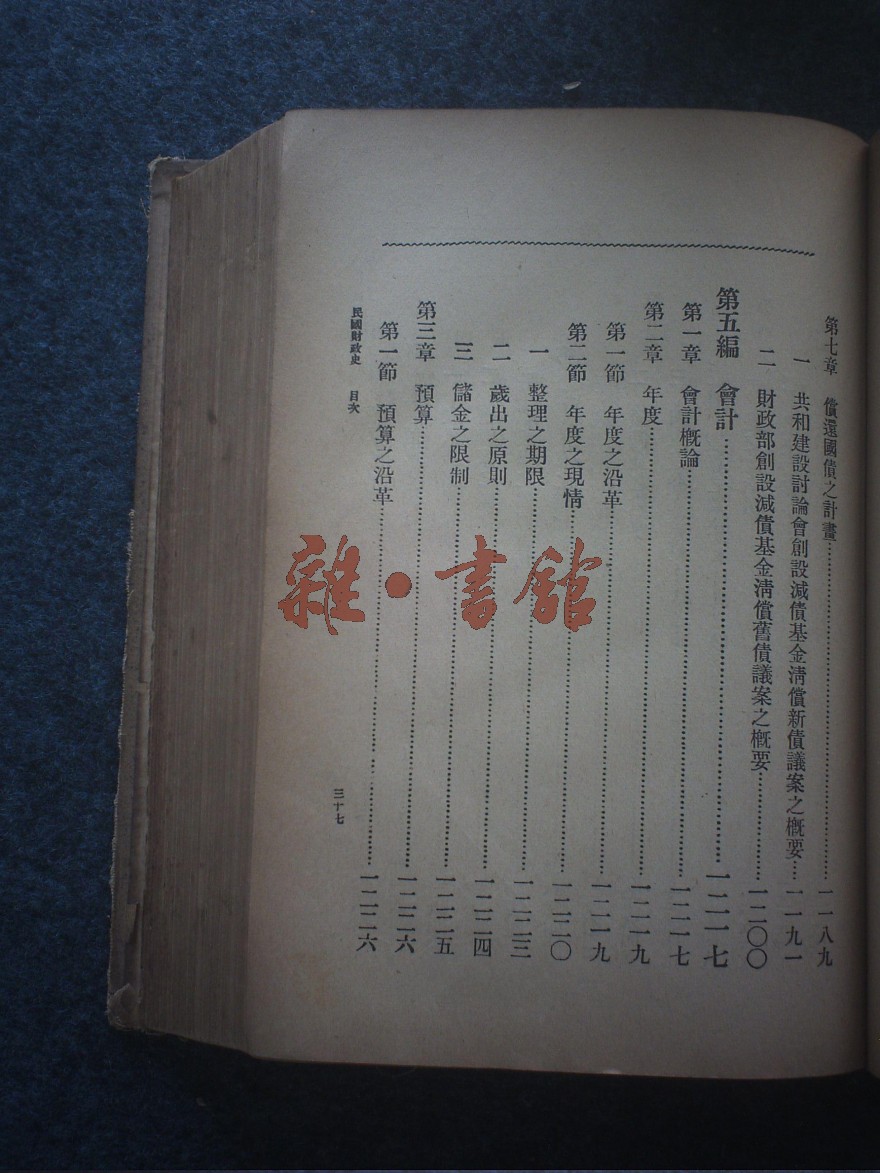 第七章 償還國債之計畫……一一八九
一 共和建設討論會創設減債基金淸償新債議案之槪要……一一九一
二 財政部創設減債基金淸償舊債議案之槪要……一二〇〇
第五編 會計……一二一七
第一章 會計槪論……一二一七
第二章 年度……一二一九
第一節 年度之沿革……一二一九
第二節 年度之現情……一二二〇
一 整理之期限……一二二三
二 歲出之原則……一二二四
三 儲金之限制……一二二五
第三章 預算……一二二六
第一節 預算之沿革……一二二六
民國財政史 目次
三十七
雜·書館